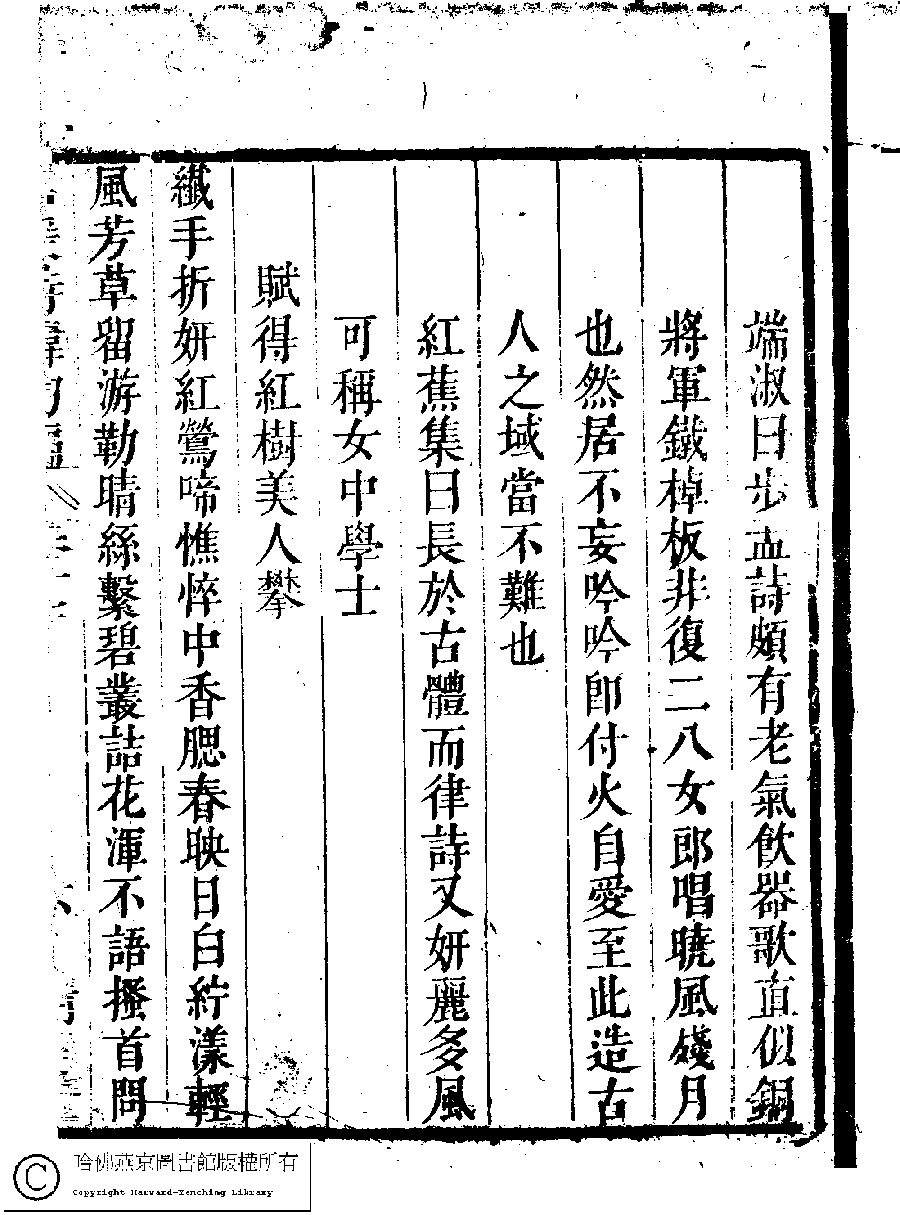 端淑曰步孟詩頗有老氣飲器歌直似銅
將軍鐵棹板非復二八女郎唱曉風殘月
也然居不妄吟吟即付火自愛至此造古
人之域當不難也
紅蕉集曰長於古體而律詩又妍麗多風
可稱女中學士
賦得紅樹美人攀
纖手折妍紅鶯啼憔悴中香腮春映日白紵漾輕
風芳草留游勒晴絲繫碧叢詰花渾不語搔首問
哈佛燕京圖書館版權所有
Copyright Harvard-Yenching Library